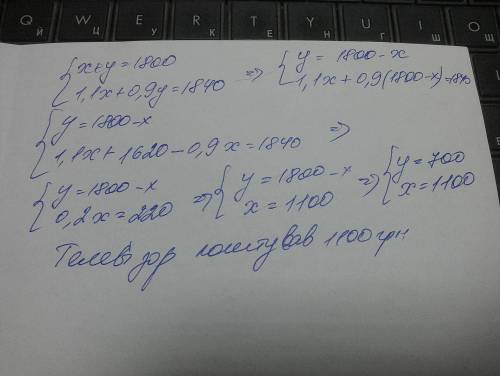 Q W E R T Y U I O
Й Ц У К Е Н Г Ш Щ
{x+y=1800 => {y=1800-x
{1,1x+0,9y=1840 {1,1x+0,9(1800-x)=1840
{y=1800-x
{1,1x+1620-0,9x=1840 =>
{y=1800-x => {y=1800-x => {y=700
{0,2x=220 {x=1100 {x=1100
Телевізор коштував 1100 грн